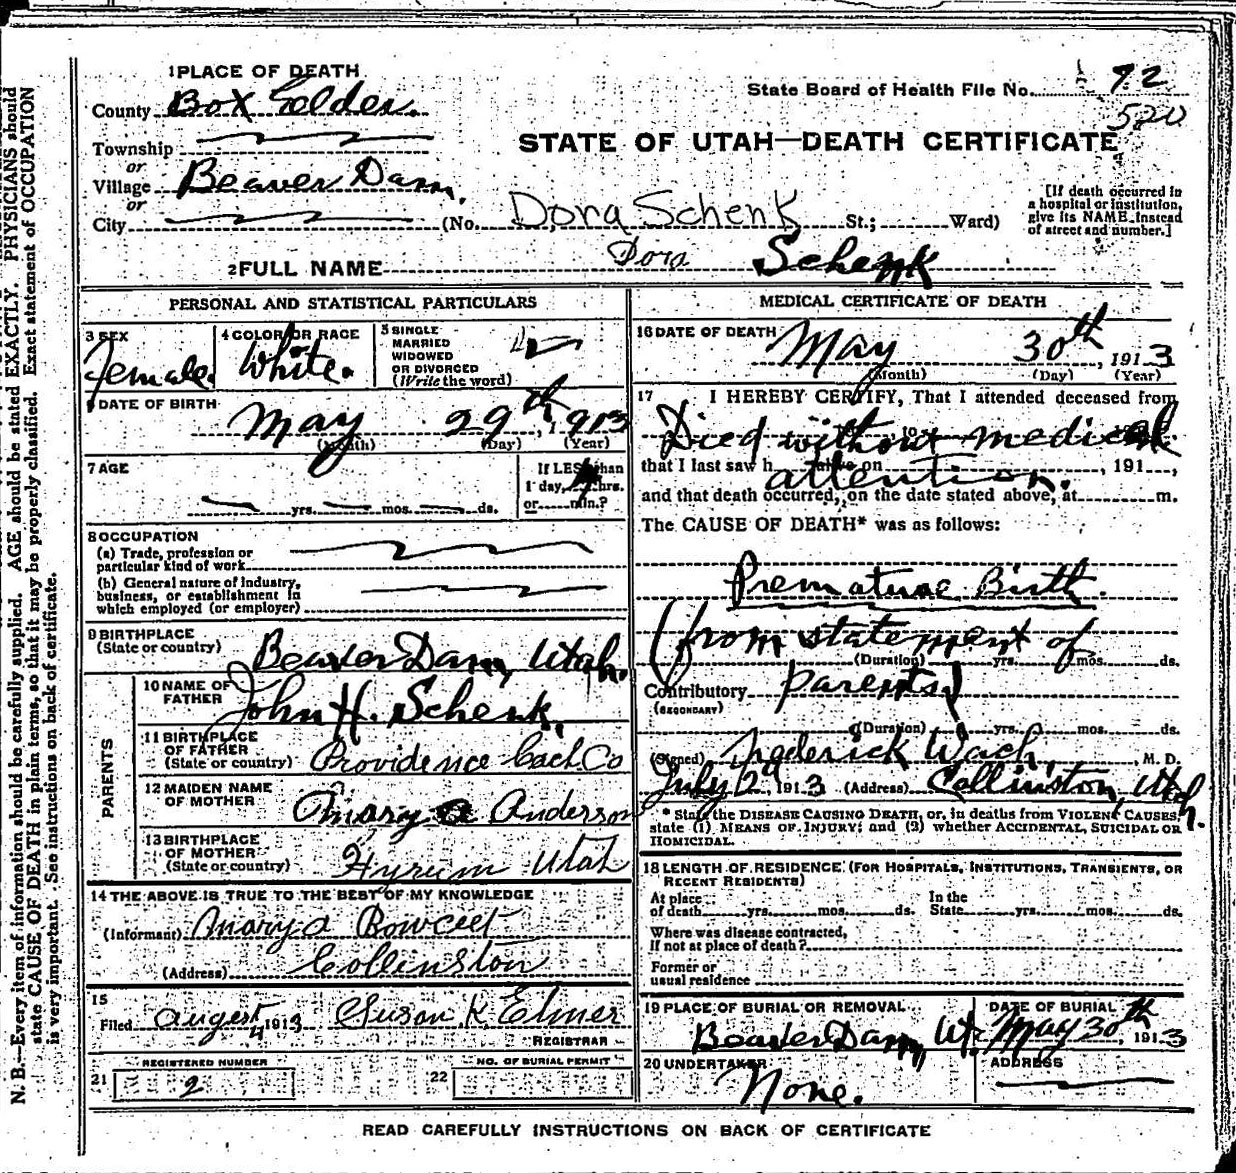 N. B.—Every item of information should be carefully supplied. AGE should be stated EXACTLY. PHYSICIANS should
state CAUSE OF DEATH in plain terms, so that it may be properly classified. Exact statement of OCCUPATION
is very important. See instructions on back of certificate.
1 PLACE OF DEATH
County Box Elder.
Township
or
Village Beaver Dam,
or
City (No. Dora Schenk St.; Ward)
State Board of Health File No. 92
520
STATE OF UTAH—DEATH CERTIFICATE
[If death occurred in
a hospital or institution,
give its NAME instead
of street and number.]
2 FULL NAME Dora Schenk
PERSONAL AND STATISTICAL PARTICULARS
3 SEX
Female.
4 COLOR OR RACE
White.
5 SINGLE
MARRIED
WIDOWED
OR DIVORCED
(Write the word)
6 DATE OF BIRTH
May 29th, 1913
(Month) (Day) (Year)
7 AGE
yrs. mos. ds.
If LESS than
1 day, hrs.
or min.?
8 OCCUPATION
(a) Trade, profession or
particular kind of work
(b) General nature of industry,
business, or establishment in
which employed (or employer)
9 BIRTHPLACE
(State or country) Beaver Dam, Utah.
PARENTS
10 NAME OF
FATHER John H. Schenk.
11 BIRTHPLACE
OF FATHER
(State or country) Providence Cach Co
12 MAIDEN NAME
OF MOTHER Mary a Anderson
13 BIRTHPLACE
OF MOTHER
(State or country) Hyrum Utah
14 THE ABOVE IS TRUE TO THE BEST OF MY KNOWLEDGE
(Informant) Mary a
(Address) Collinston
15
Filed August 4 1913 Susan K Elmer
REGISTRAR
REGISTERED NUMBER
21 2
NO. OF BURIAL PERMIT
22
MEDICAL CERTIFICATE OF DEATH
16 DATE OF DEATH May 30th, 1913
(Month) (Day) (Year)
17 I HEREBY CERTIFY, That I attended deceased from
Died without medical
that I last saw h alive on , 191 ,
attention.
and that death occurred, on the date stated above, at m.
The CAUSE OF DEATH* was as follows:
Premature Birth.
(from statement of
(Duration) yrs. mos. ds.
Contributory parents)
(SECONDARY)
(Duration) yrs. mos. ds.
(Signed) Frederick Wach, M. D.
July 2d, 1913 (Address) Collinston, Utah.
* State the DISEASE CAUSING DEATH, or, in deaths from VIOLENT CAUSES,
state (1) MEANS OF INJURY; and (2) whether ACCIDENTAL, SUICIDAL OR
HOMICIDAL.
18 LENGTH OF RESIDENCE (FOR HOSPITALS, INSTITUTIONS, TRANSIENTS, OR
RECENT RESIDENTS)
At place
of death yrs. mos. ds.
In the
State yrs. mos. ds.
Where was disease contracted,
If not at place of death?
Former or
usual residence
19 PLACE OF BURIAL OR REMOVAL
Beaver Dam, Ut.
DATE OF BURIAL
May 30th, 1913
20 UNDERTAKER
None.
ADDRESS
READ CAREFULLY INSTRUCTIONS ON BACK OF CERTIFICATE